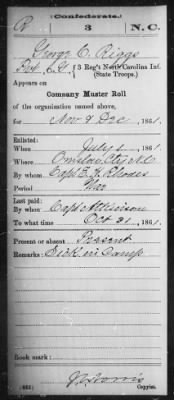 (Confederate.)
R 3 N.C.
George C. Riggs
Pvt, Co. G, 3 Reg't North Carolina Inf.
(State Troops.)
Appears on
Company Muster Roll
of the organization named above,
for Nov & Dec , 1861.
Enlisted:
When July 1 , 1861.
Where Onslow Cty N.C.
By whom Capt E. H. Rhodes
Period War
Last paid:
By whom Capt
To what time Oct 31 , 1861.
Present or absent Present
Remarks: Sick in Camp
Book mark:
(642)
Copyist.